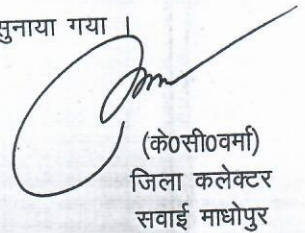 सुनाया गया |
(के0सी0वर्मा)
जिला कलेक्टर
सवाई माधोपुर